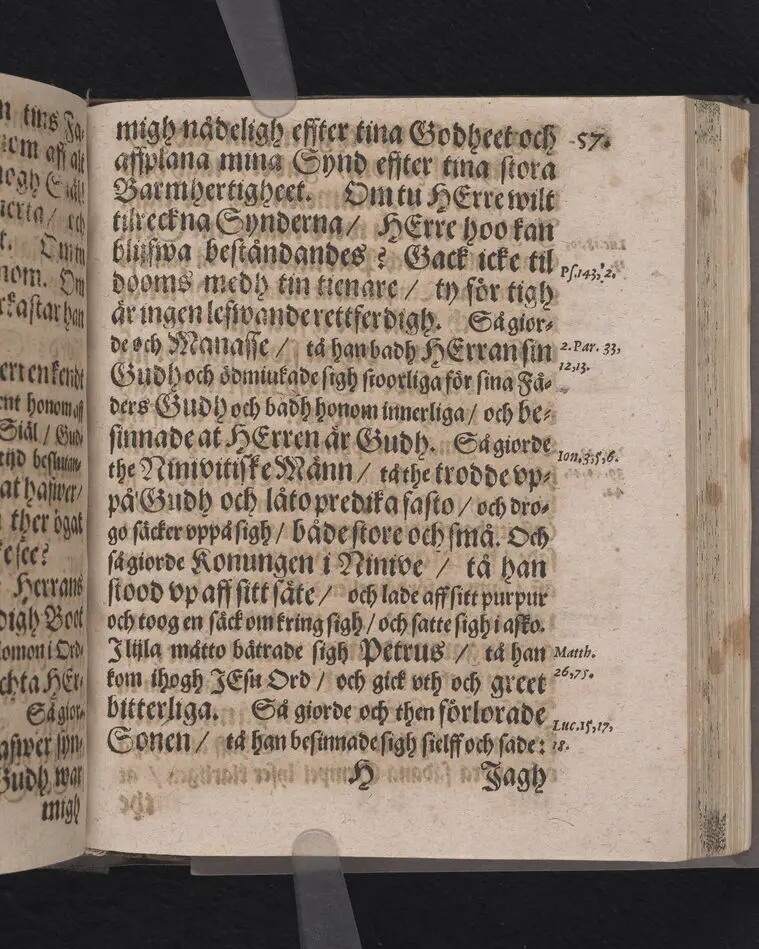 migh nådeligh effter tina Godheet och
57.
affplana mina Synd effter tina stora
Barmhertigheet. Om tu HErre wilt
tilreckna Synderna / HErre hoo kan
bliffwa beståndandes ? Gack icke til
Ps. 143, 2.
dooms medh tin tienare / ty för tigh
är ingen leffwande rettferdigh. Så gior-
de och Manasse / tå han badh HErran sin
2. Par. 33,
12,13.
Gudh och ödmiukade sigh stoorliga för sina Fä-
ders Gudh och badh honom innerliga / och be-
sinnade at HErren är Gudh. Så giorde
Ion. 3, 5, 6.
the Ninivitiske Männ / tå the trodde vp-
på Gudh och låto predika fasto / och dro-
go säcker vppå sigh / både store och små. Och
så giorde Konungen i Ninive / tå han
stood vp aff sitt säte / och lade aff sitt purpur
och toog en säck omkring sigh / och satte sigh i asko.
I lijka måtto bätrade sigh Petrus / tå han
Matth.
26, 75.
kom ihogh JEsu Ord / och gick vth och greet
bitterliga. Så giorde och then förlorade
Luc. 15, 17,
18.
Sonen / tå han besinnade sigh sielff och sade:
H Jagh
nom. Om
erkastar han
Siäl / Gud
at haffwer /
ther ögat
Herrans
Så gior-
Gudh war
migh